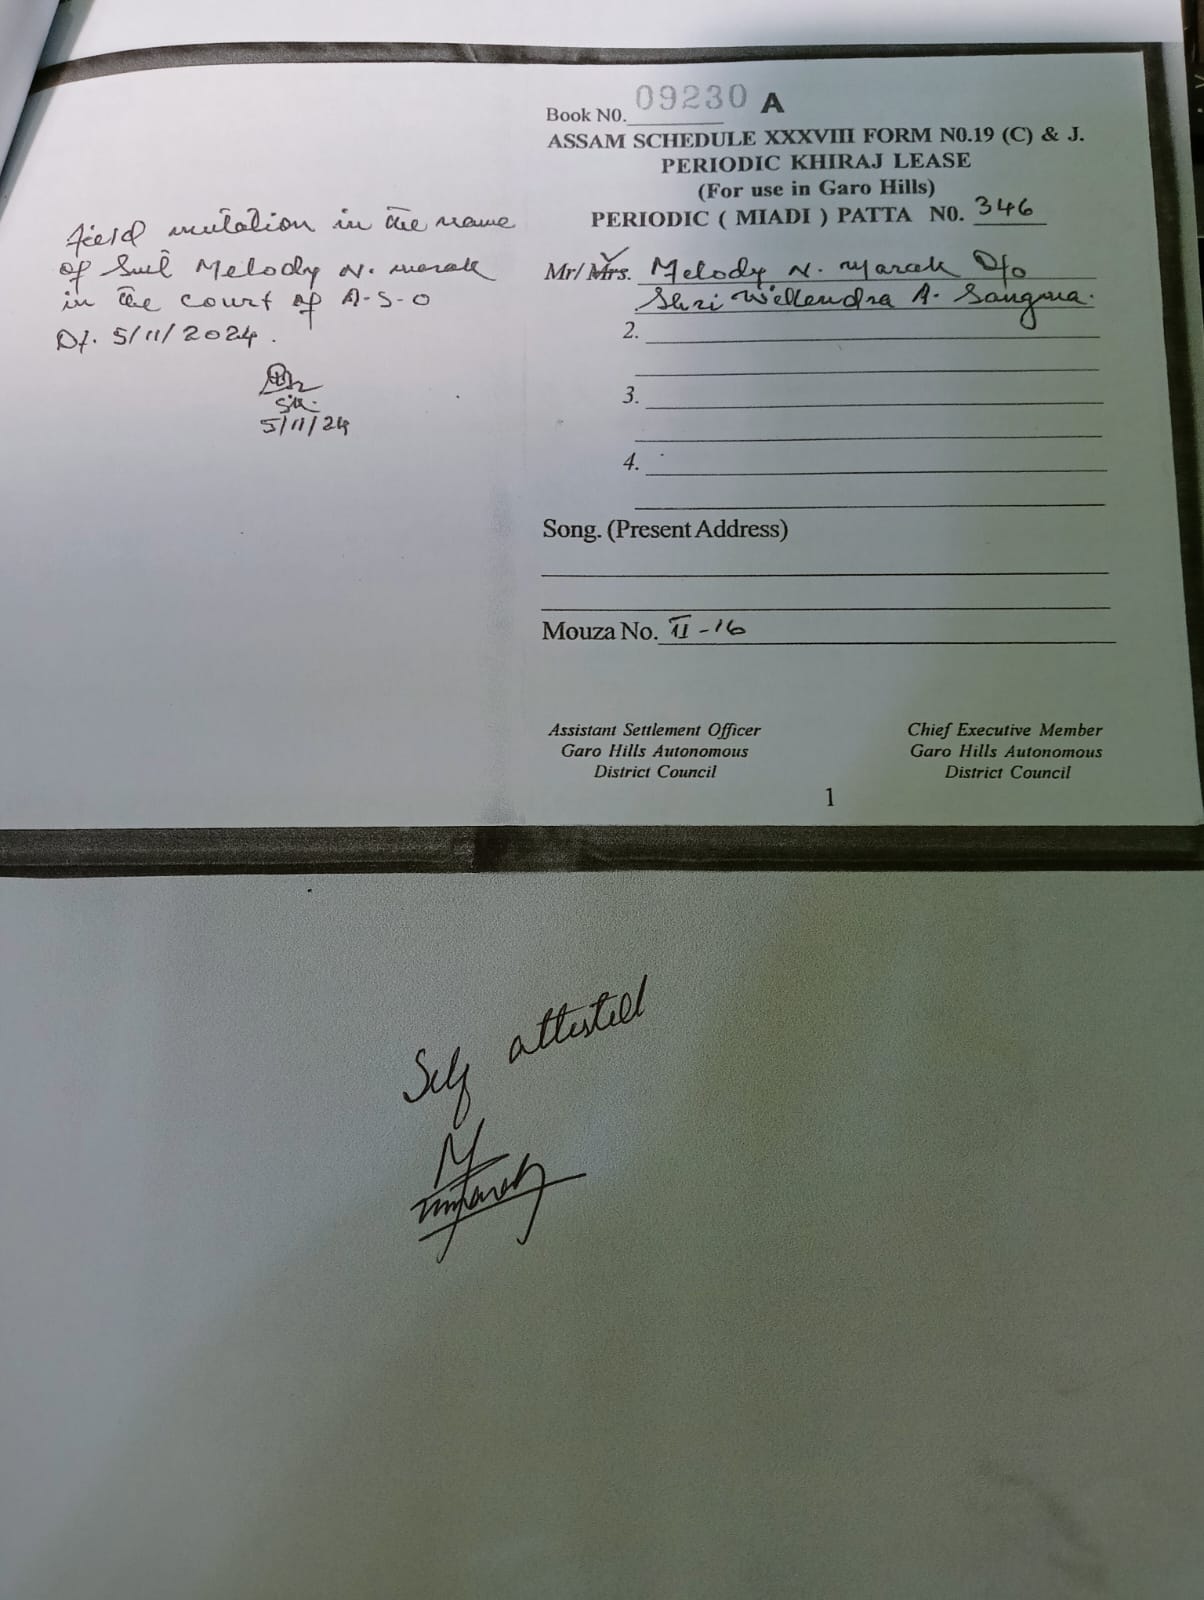 Book N0. 09230 A
ASSAM SCHEDULE XXXVIII FORM N0.19 (C) & J.
PERIODIC KHIRAJ LEASE
(For use in Garo Hills)
PERIODIC ( MIADI ) PATTA N0. 346
field mutation in the name
of Smt Melody N. marak
in the court of A-S-O
Dt. 5/11/2024.
5/11/24
Mr/Mrs. Melody N. Marak D/o
Shri Willendra A. Sangma.
2.
3.
4.
Song. (Present Address)
Mouza No. II-16
Assistant Settlement Officer
Garo Hills Autonomous
District Council
Chief Executive Member
Garo Hills Autonomous
District Council
1
Self attested